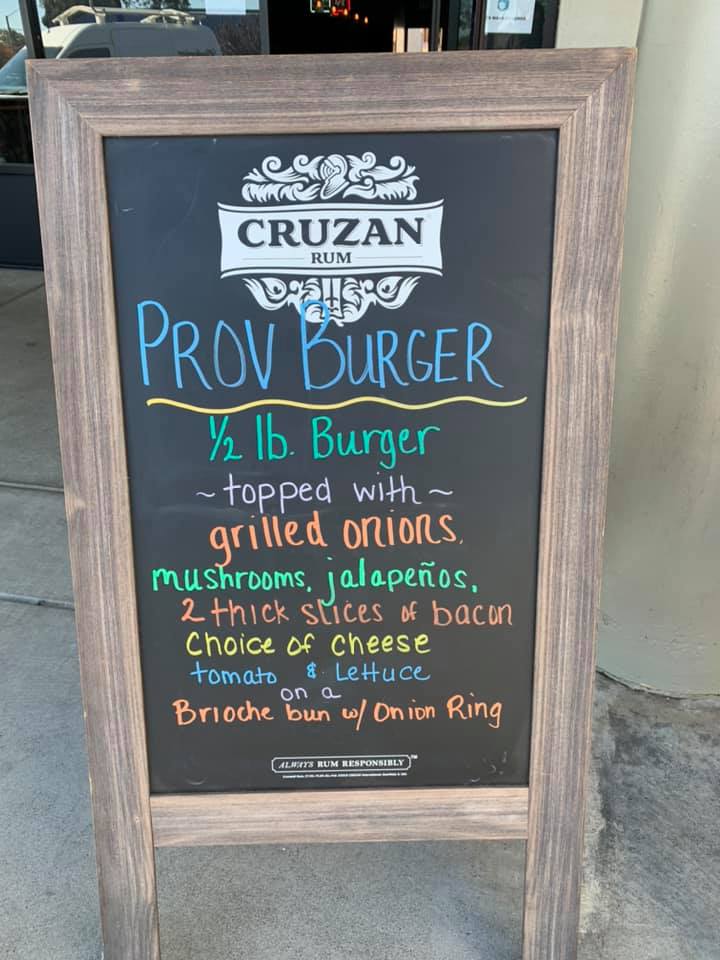 CRUZAN
RUM
PROV BURGER
½ lb. Burger
~ topped with ~
grilled onions,
mushrooms, jalapeños,
2 thick slices of bacon
Choice of cheese
tomato & Lettuce
on a
Brioche bun w/ Onion Ring
ALWAYS RUM RESPONSIBLY™